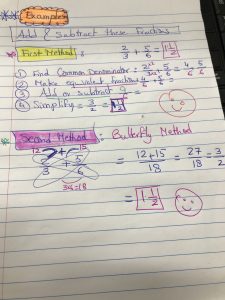 Example
Add & Subtract these Fractions
First Method: 2/3 + 5/6 = 1 1/2
① Find Common Denomenator = 2×2/3×2 + 5/6 = 4/6 + 5/6
② Make equivalent fractions 4/6 + 5/6 =
③ Add or subtract 9/6
④ Simplify = 3/2 = 1 1/2
Second Method: Butterfly Method
12 + 15
2/3 + 5/6 = 12+15/18 = 27/18 = 3/2
3×6=18
= 1 1/2